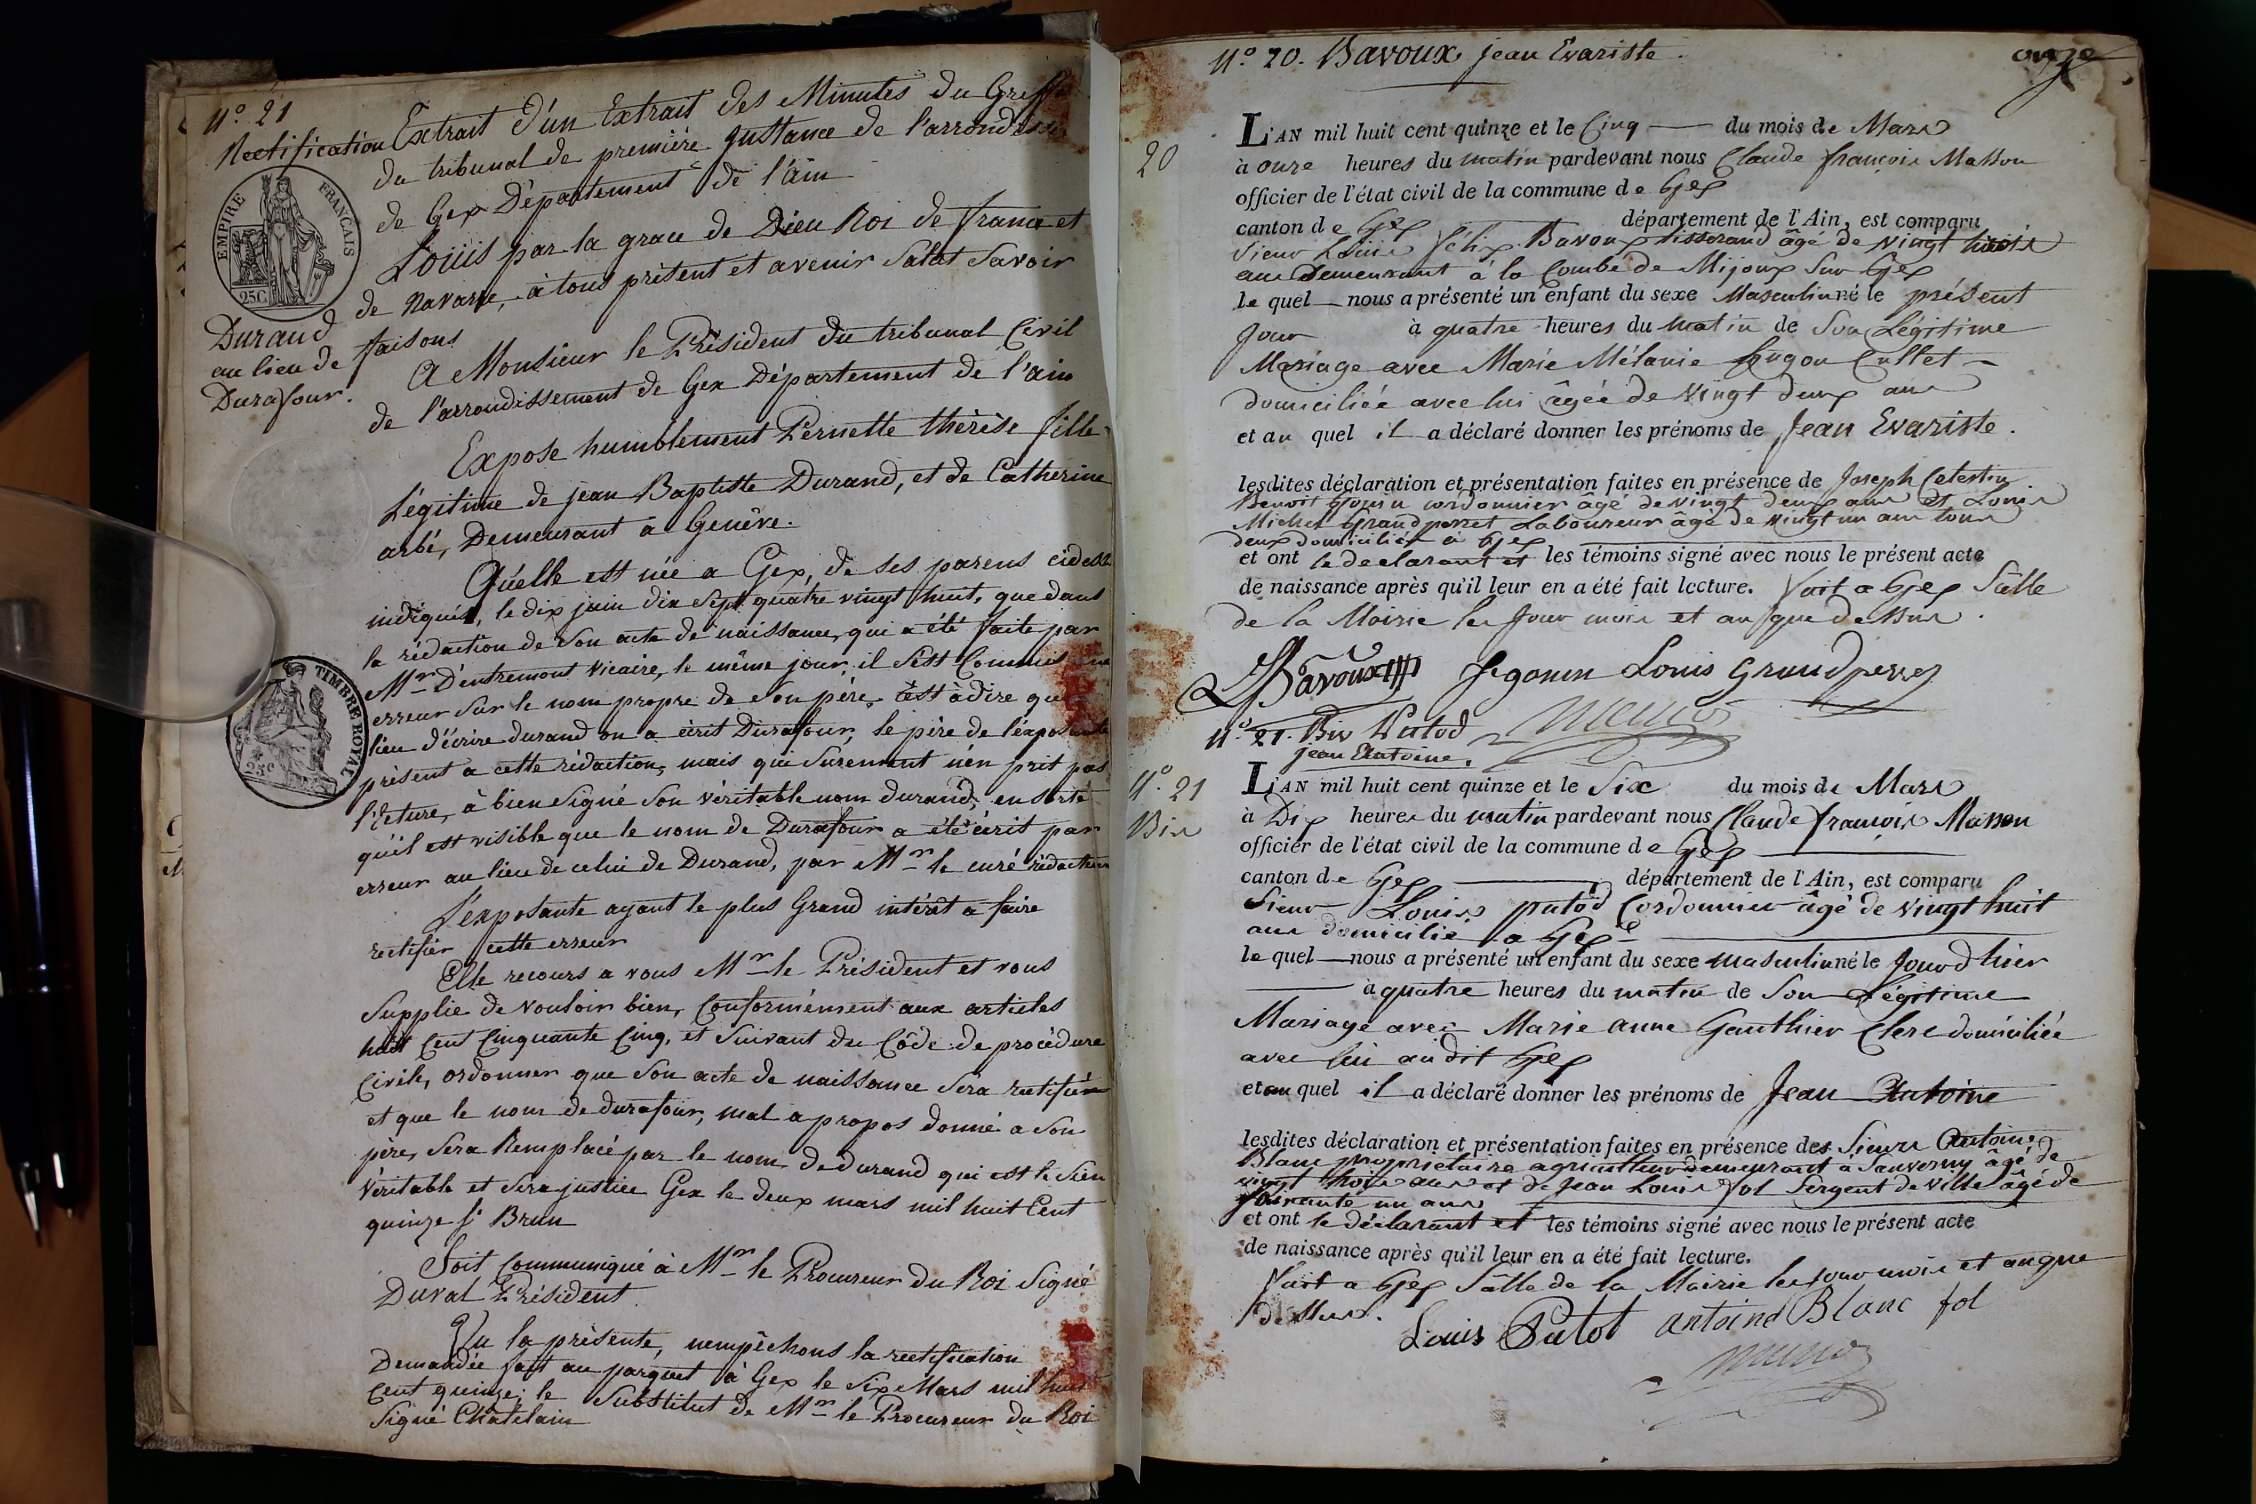 N.º 21
Rectification
EMPIRE FRANÇAIS
25C
Durand
au lieu de
Durafour.
TIMBRE ROYAL
25c
Extrait d'un Extrait des Minutes du Greffe
du tribunal de première Instance de l'arrondisse
de Gex Département de l'Ain
Louis par la grace de Dieu Roi de france et
de Navarre, à tous présent et avenir Salut Savoir
faisons
A Monsieur le Président du tribunal Civil
de l'arrondissement de Gex Département de l'ain
Expose humblement Pernette thérèse fille
Légitime de jean Baptiste Durand, et de Catherine
arbé, Demeurant à Genève.
Qu'elle est née a Gex, de ses parens cidess
indiqués, le dix juin dix Sept quatre vingt huit, que dans
la rédaction de Son acte de naissance, qui a été faite par
Mr D'entremont vicaire, le même jour, il S'est Commis une
erreur Sur le nom propre de Son père, c'est à dire qu
lieu d'écrire durand on a écrit Durafour, le père de l'exposante
présent a cette rédaction, mais qui Surement n'en prit pas
l'Ecture, à bien Signé Son véritable nom durand, en sorte
qu'il est visible que le nom de Durafour a été écrit par
erreur au lieu de celui de Durand, par Mr le curé rédacteur
L'exposante ayant le plus Grand intérêt a faire
rectifier cette erreur
Elle recours a vous Mr le Président et vous
Supplie de vouloir bien, Conformément aux articles
huit Cent Cinquante Cinq, et Suivant du Côde de procédure
Civile, ordonner que Son acte de naissance Sera rectifiér
et que le nom de durafour, mal a propos donné a Son
père, Sera Remplacé par le nom de durand qui est le Sien
véritable et Sera justice Gex le deux mars mil huit Cent
quinze Sé Brun
Soit Communiqué à Mr le Procureur du Roi Signé
Duval Président
Vu la présente, nempêchons la rectification
Demandée fait au parquet à Gex le Six Mars mil huit
Cent quinze; le Substitut de Mr le Procureur du Roi
Signé Châtelain
N.º 20. Bavoux jean Evariste.
onze
20
L'AN mil huit cent quinze et le Cinq du mois de Mars
à onze heures du matin pardevant nous Claude françois Masson
officier de l'état civil de la commune de Gex
canton de Gex département de l'Ain, est comparu
Sieur Louis Felix Bavoux tisserand âgé de vingt huit
ans Demeurant à la Combe de Mijoux Sur Gex
lequel nous a présenté un enfant du sexe Masculin né le présent
Jour à quatre heures du matin de Son Légitime
Mariage avec Marie Mélanie hugon Cullet
domiciliée avec lui âgée de vingt deux ans
et au quel il a déclaré donner les prénoms de Jean Evariste.
lesdites déclaration et présentation faites en présence de Joseph Celestin
Benoit Gonin cordonnier âgé de vingt deux ans et Louis
Michel Grandperret Laboureur âgé de vingt un ans tous
deux domiciliés à Gex
et ont le declarant et les témoins signé avec nous le présent acte
de naissance après qu'il leur en a été fait lecture. Fait a Gex Salle
de la Mairie les Jour mois et an que dessus.
Bavoux Jegonin Louis Grandperret
N.º 21. Bis Putod
jean Antoine.
N.º 21
Bis
L'AN mil huit cent quinze et le Six du mois de Mars
à Dix heures du matin pardevant nous Claude françois Masson
officier de l'état civil de la commune de Gex
canton de Gex département de l'Ain, est comparu
Sieur Louis putod Cordonnier âgé de vingt huit
ans domicilié a Gex
lequel nous a présenté un enfant du sexe masculin né le Jour d'hier
à quatre heures du matin de Son Légitime
Mariage avec Marie anne Gauthier Clerc domiciliée
avec lui audit Gex
et au quel il a déclaré donner les prénoms de Jean Antoine
lesdites déclaration et présentation faites en présence des Sieurs Antoine
Blanc propriétaire agriculteur demeurant à Sauverny âgé de
vingt trois ans et de Jean Louis fol Sergent de ville âgé de
Soixante un ans
et ont le déclarant et les témoins signé avec nous le présent acte
de naissance après qu'il leur en a été fait lecture.
Fait a Gex Salle de la Mairie les Jour mois et an que
dessus.
Louis Putot antoine Blanc fol